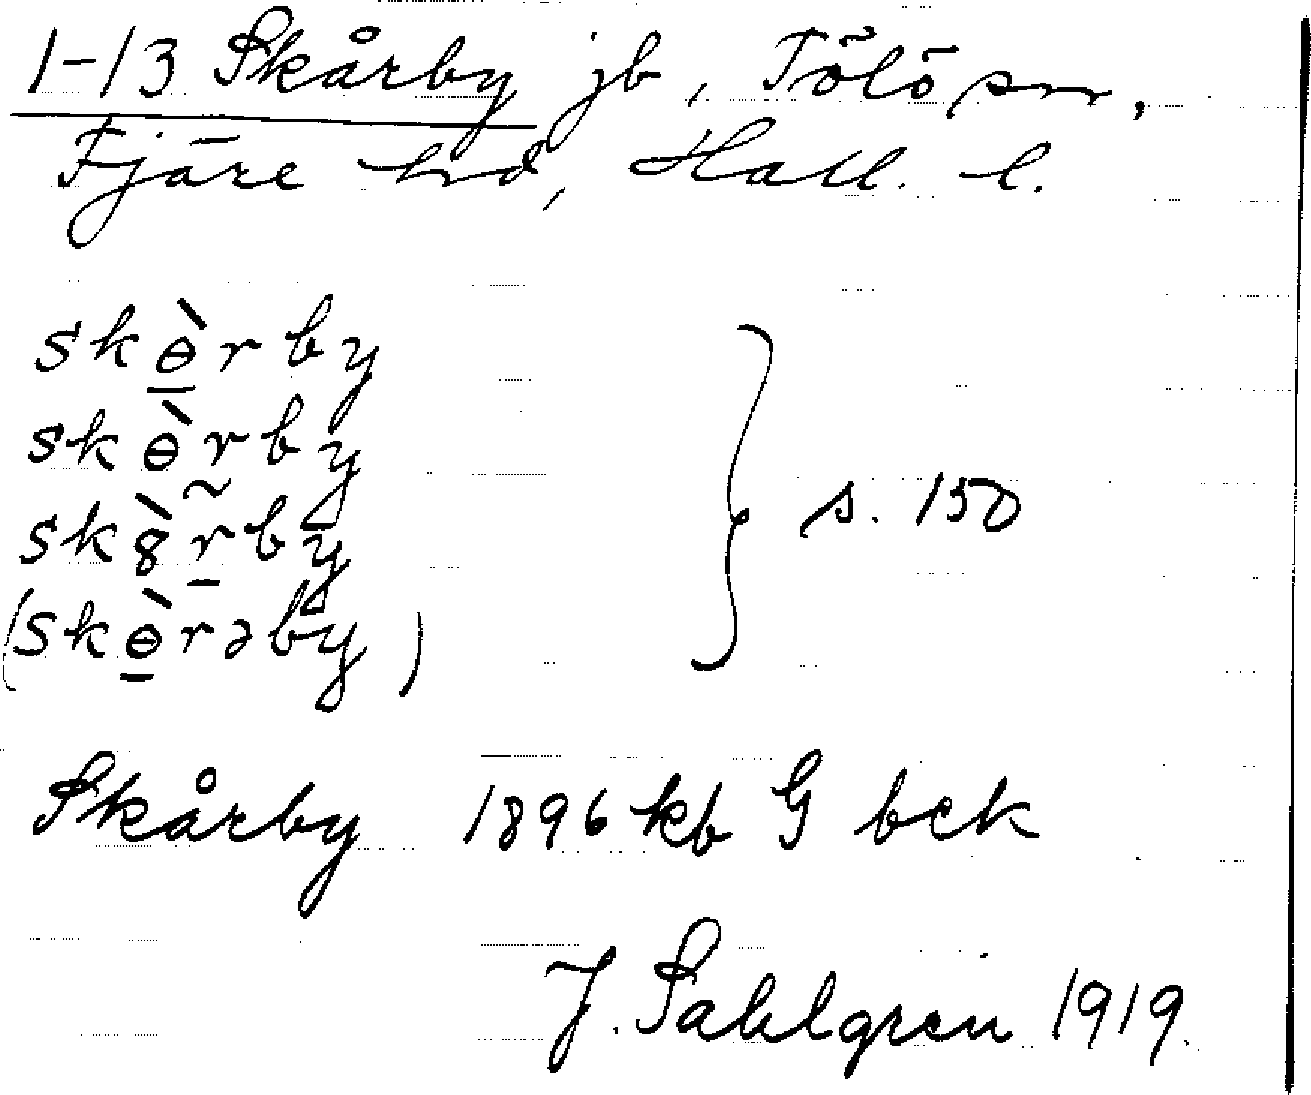 1-13 Skårby jb, Tölö sn,
Fjäre hd, Hall. l.
skɵ̀rby
skɵ̀rby
sk8̀r̃by
(skɵ̀rəby)
} s. 150
Skårby 1896 kb G bek
J. Sahlgren 1919.